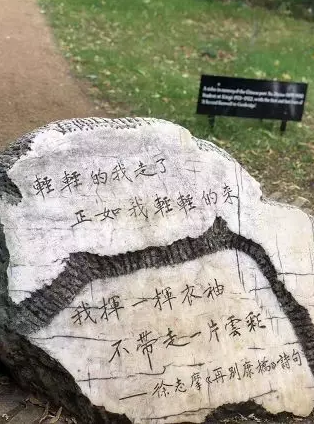 輕輕的我走了
正如我輕輕的來
我揮一揮衣袖
不帶走一片雲彩
——徐志摩《再別康橋》詩句
A stone in memory of the Chinese poet Xu Zhimo
Student at King's 1921-1922, with the first and last lines of
'A Second Farewell to Cambridge'